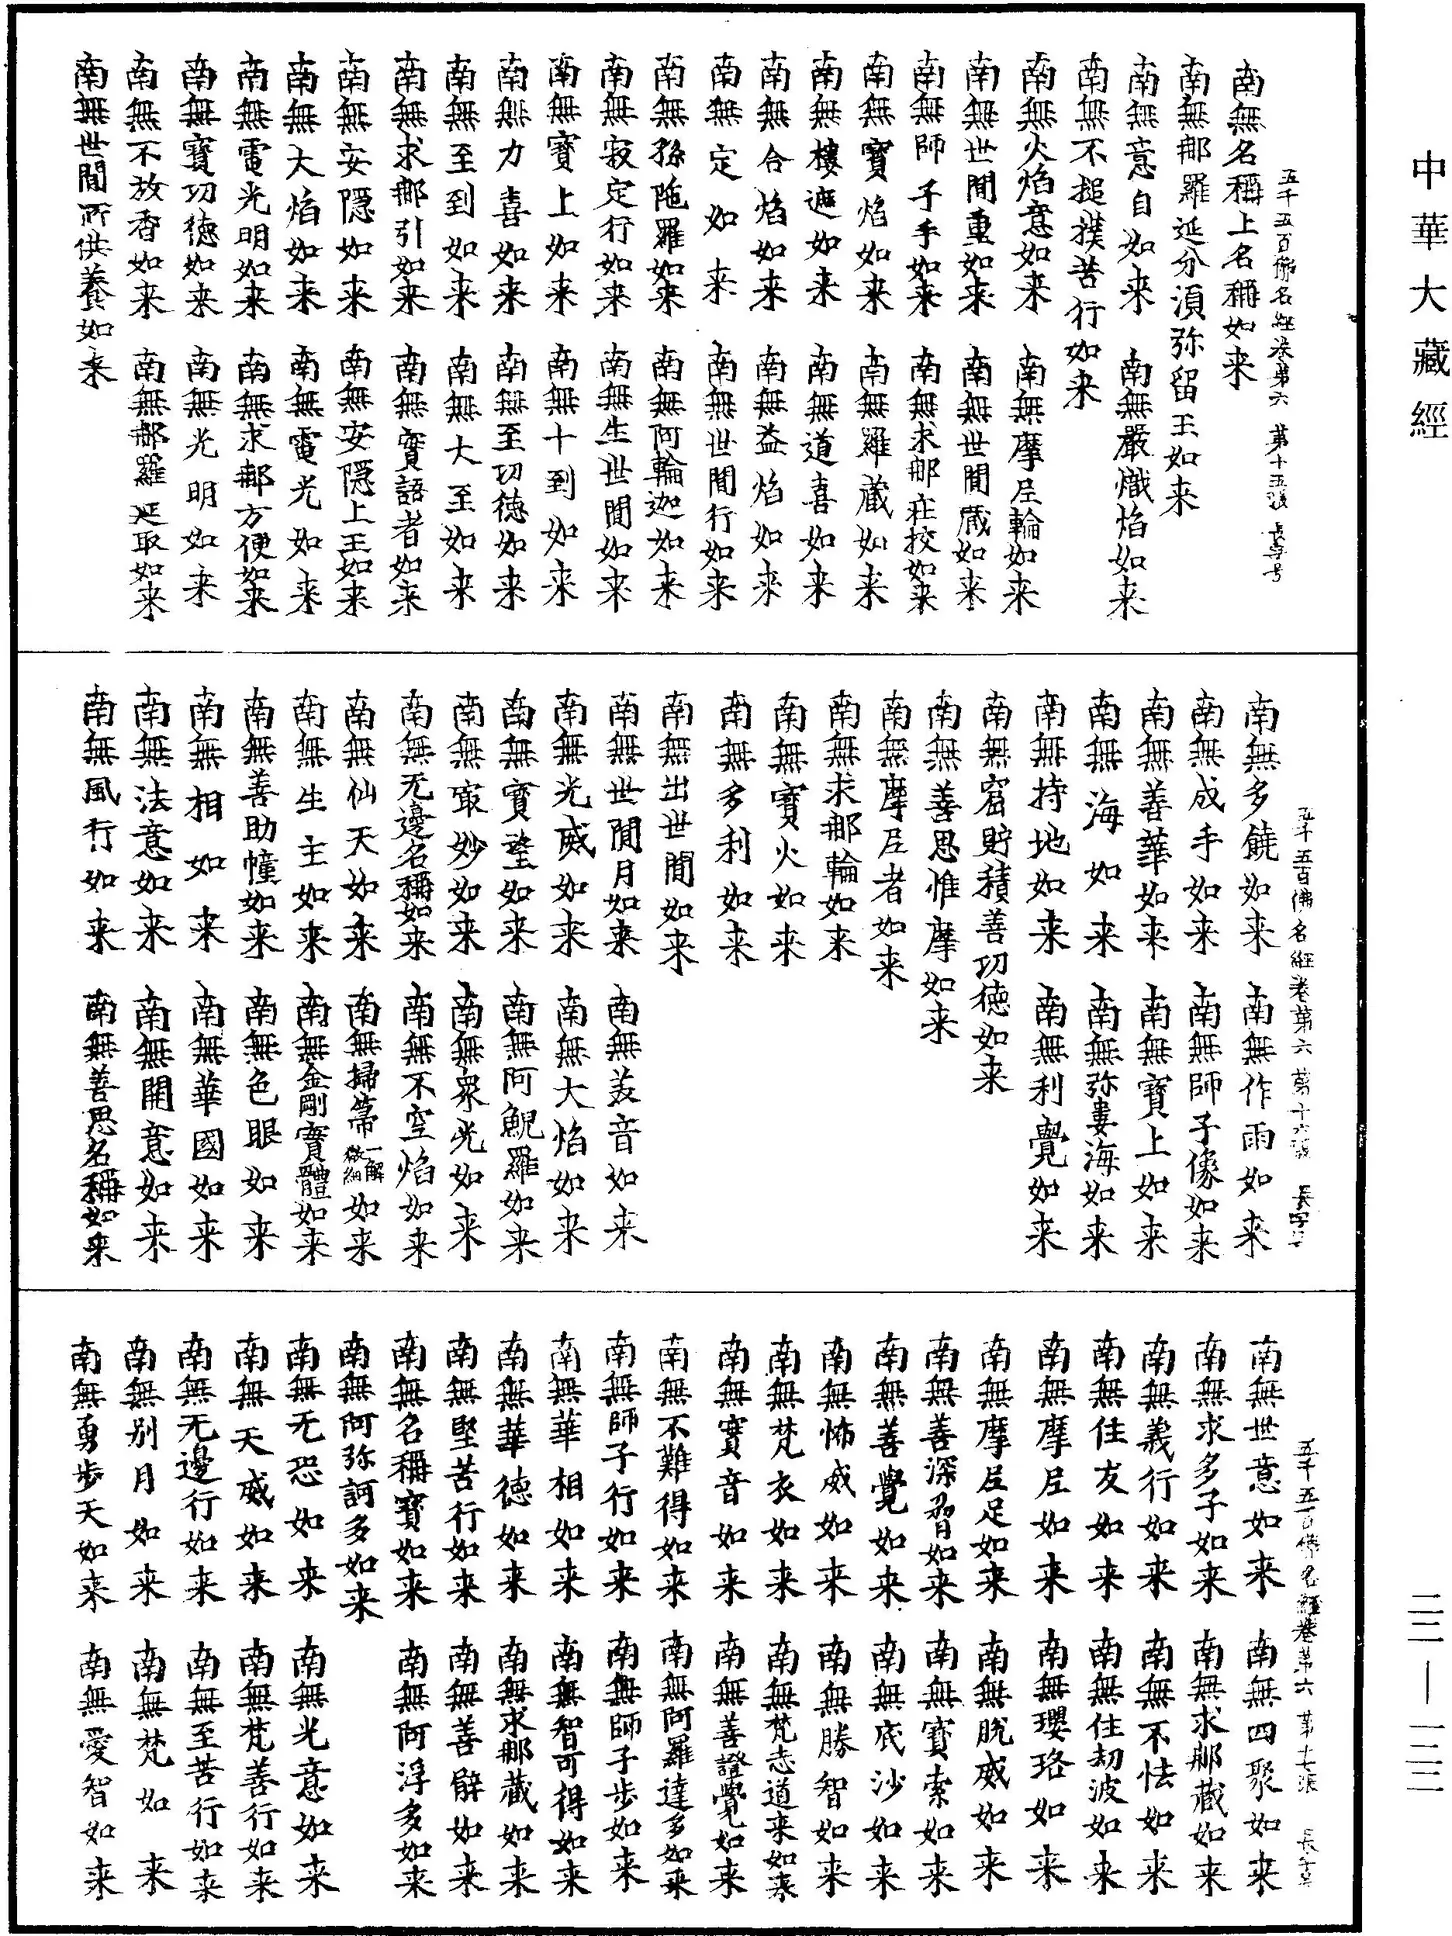 中華大藏經
五千五百佛名經卷第六 第十五張 長字号
南無名稱上名稱如来
南無那羅延分湏弥留王如来
南無意自如来 南無嚴熾焰如来
南無不搥撲苦行如来
南無火焰意如来 南無摩尼輪如来
南無世間重如来 南無世間處如来
南無師子手如来 南無求那莊挍如来
南無寶焰如来 南無羅藏如来
南無樓遮如来 南無道喜如来
南無合焰如来 南無益焰如来
南無定如来 南無世間行如来
南無孫陁羅如来 南無阿輪迦如来
南無寂定行如来 南無生世間如来
南無寶上如来 南無十到如来
南無力喜如来 南無至功德如来
南無至到如来 南無大至如来
南無求那引如来 南無實語者如来
南無安隱如来 南無安隱上王如来
南無大焰如来 南無電光如来
南無電光明如来 南無求那方便如来
南無寶功德如来 南無光明如来
南無不放香如来 南無那羅延取如来
南無世間所供養如来
五千五百佛名經卷第六 第十六張 長字号
南無多饒如来 南無作雨如来
南無成手如来 南無師子像如来
南無善華如来 南無寶上如来
南無海如来 南無弥婁海如来
南無持地如来 南無利覺如来
南無窟貯積善功德如来
南無善思惟摩如来
南無摩尼者如来
南無求那輪如来
南無寶火如来
南無多利如来
南無出世間如来
南無世間月如来 南無美音如来
南無光威如来 南無大焰如来
南無寶瑩如来 南無阿鯢羅如来
南無冣妙如来 南無衆光如来
南無无邊名稱如来 南無不空焰如来
南無仙天如来 南無掃箒一解微細如来
南無生主如来 南無金剛寶體如来
南無善助幢如来 南無色眼如来
南無相如来 南無華國如来
南無法意如来 南無開意如来
南無風行如来 南無善思名稱如来
五千五百佛名經卷第六 第十七張 長字号
南無世意如来 南無四聚如来
南無求多子如来 南無求那藏如来
南無義行如来 南無不怯如来
南無住友如来 南無住劫波如来
南無摩尼如来 南無瓔珞如来
南無摩尼足如来 南無脫威如来
南無善深習如来 南無寶索如来
南無善覺如来 南無底沙如来
南無怖威如来 南無勝智如来
南無梵衣如来 南無梵志道来如来
南無寶音如来 南無善證覺如来
南無不難得如来 南無阿羅達多如来
南無師子行如来 南無師子步如来
南無華相如来 南無智可得如来
南無華德如来 南無求那藏如来
南無堅苦行如来 南無善臂如来
南無名稱寶如来 南無阿浮多如来
南無阿弥訶多如来
南無无恐如来 南無光意如来
南無天威如来 南無梵善行如来
南無无邊行如来 南無至苦行如来
南無別月如来 南無梵如来
南無勇步天如来 南無愛智如来
二二—一二二